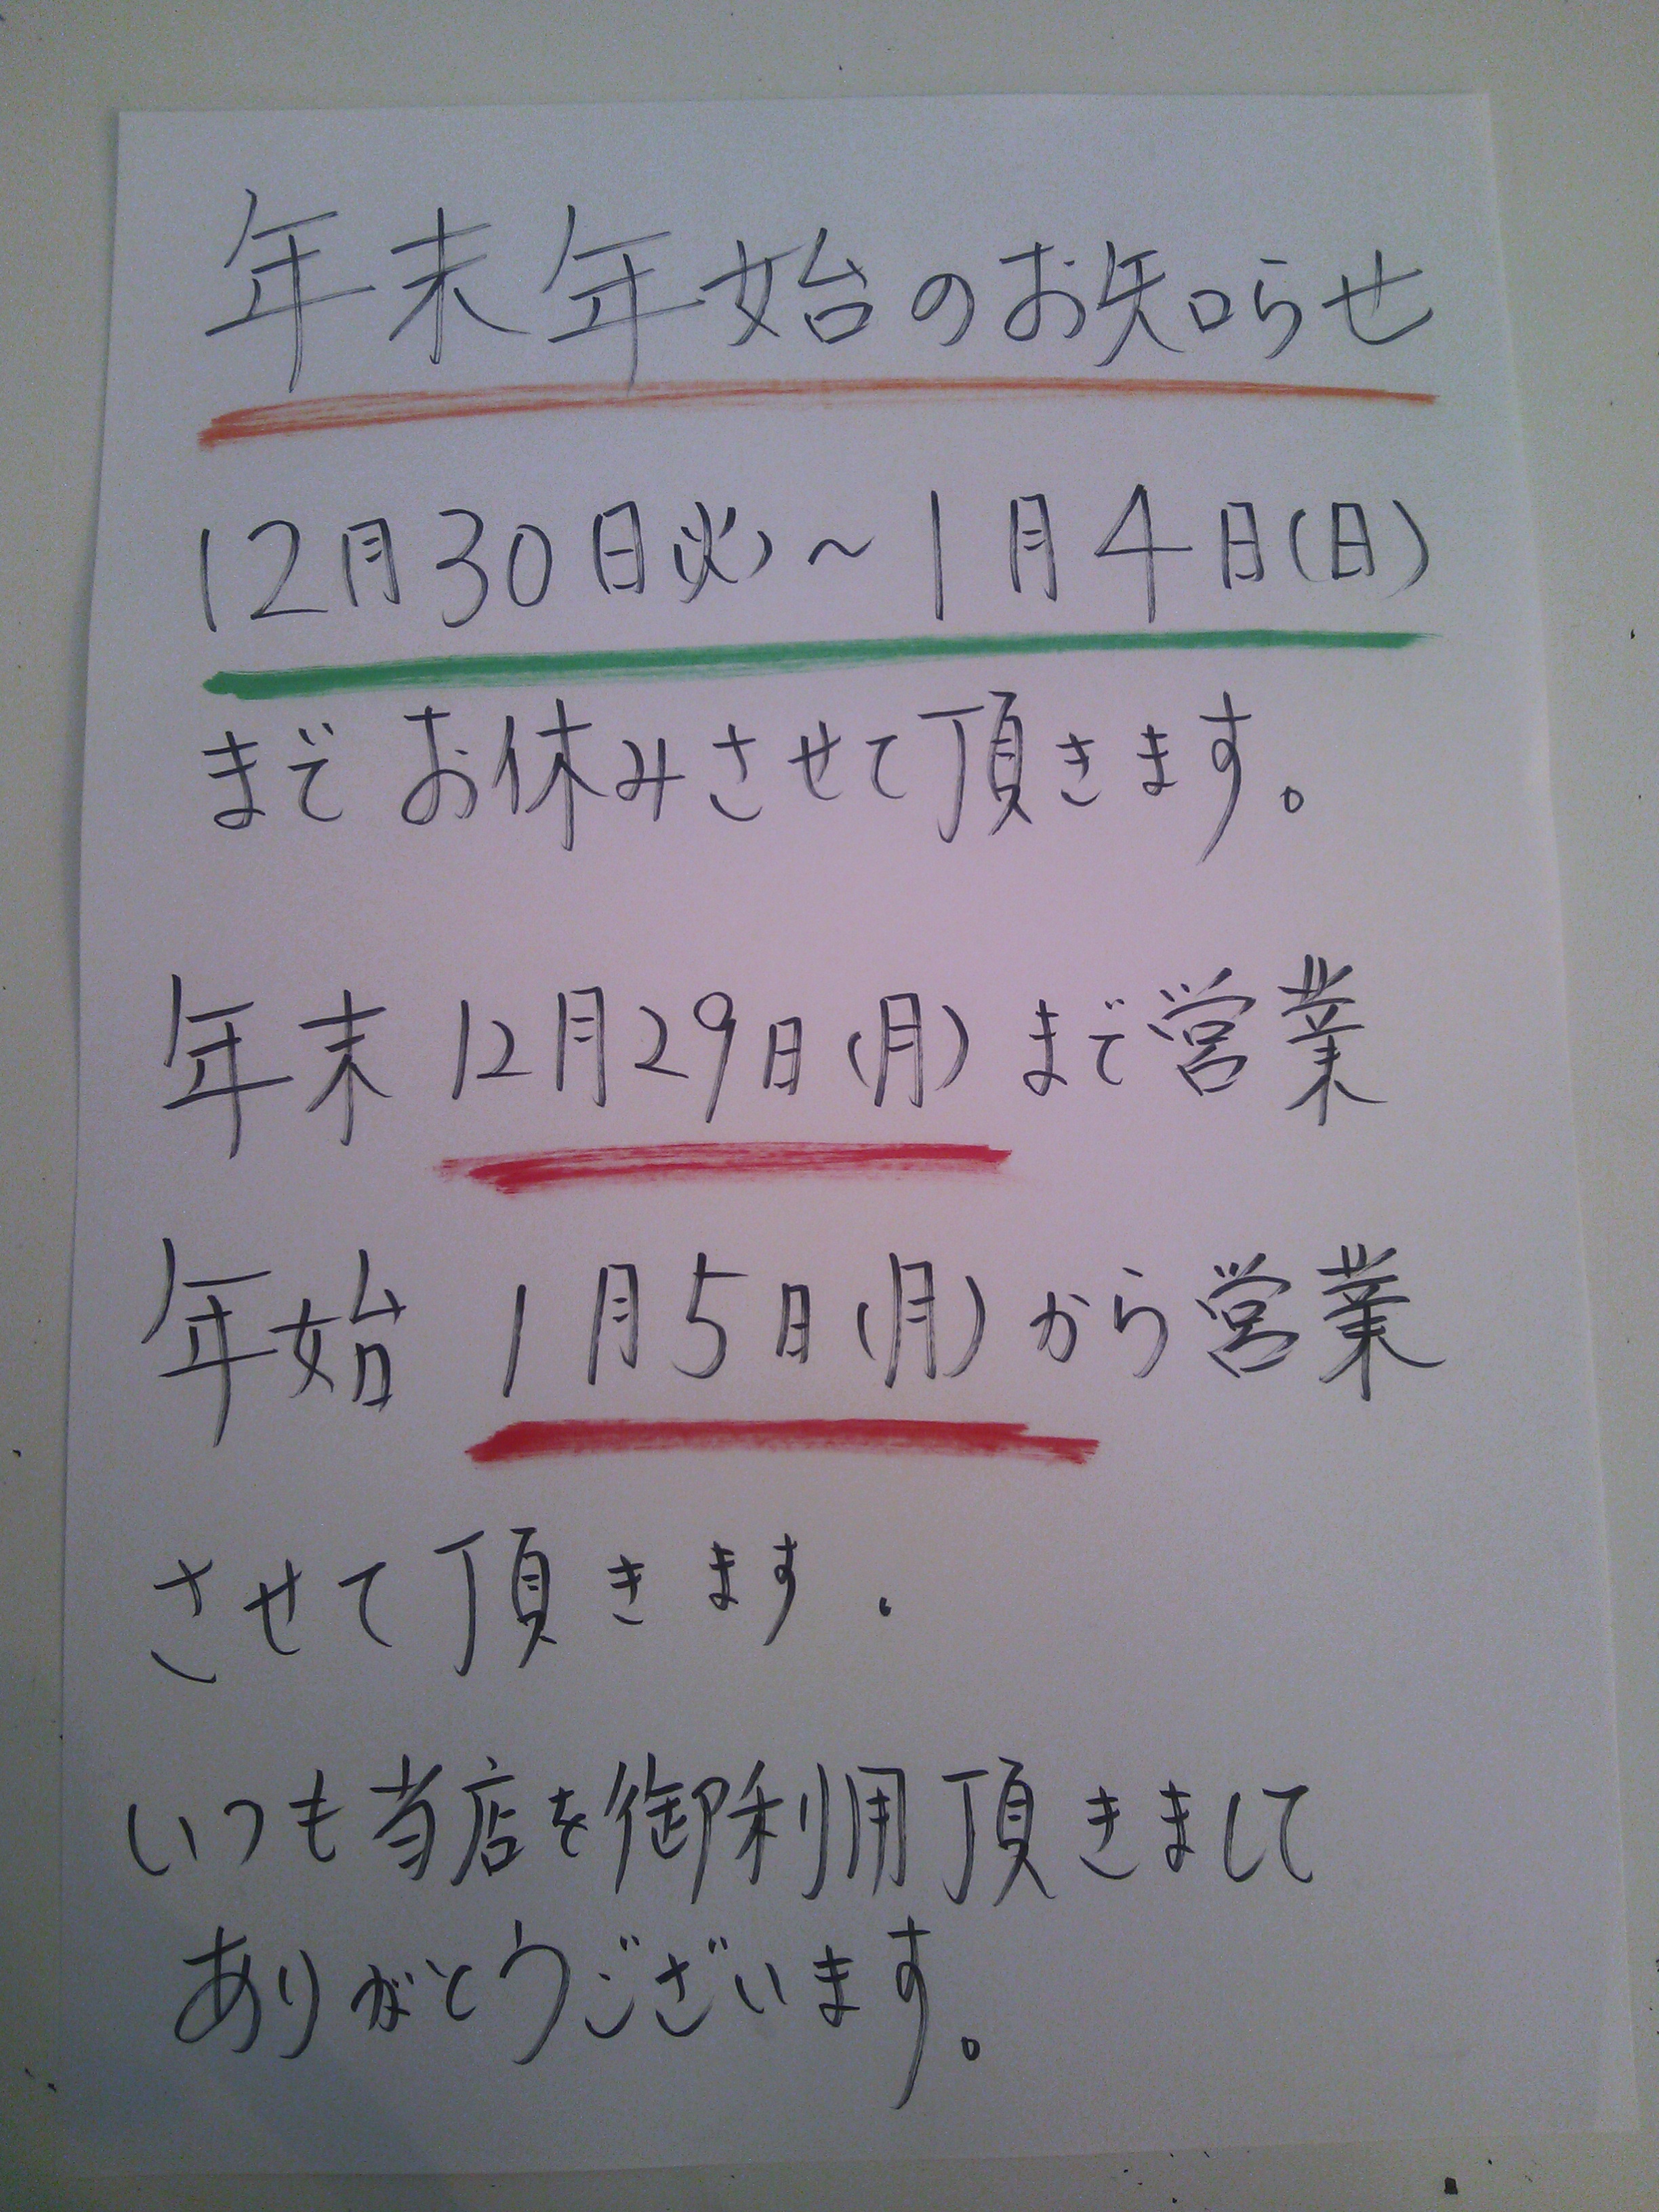 年末年始のお知らせ
12月30日(火)～1月4日(日)
までお休みさせて頂きます。
年末 12月29日(月)まで営業
年始 1月5日(月)から営業
させて頂きます.
いつも当店を御利用頂きまして
ありがとうございます。